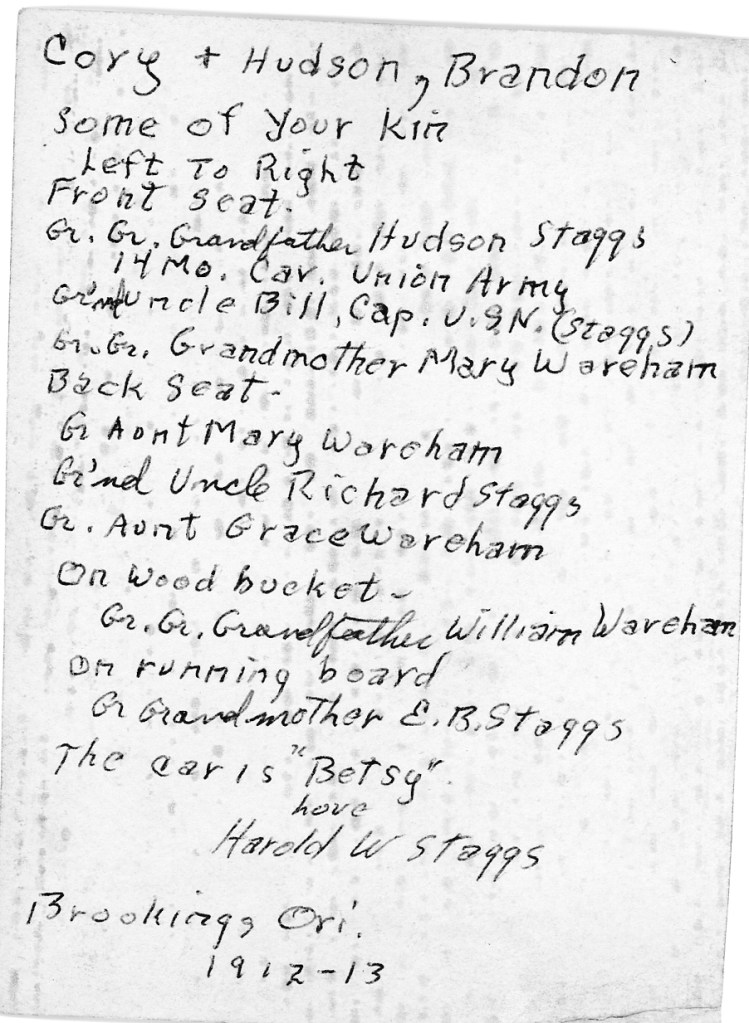 Cory + Hudson, Brandon
Some of Your Kin
Left To Right
Front Seat.
Gr. Gr. Grandfather Hudson Staggs
14 Mo. Cav. Union Army
Gr'nd Uncle Bill, Cap. U.S.N. (Staggs)
Gr. Gr. Grandmother Mary Wareham
Back Seat-
Gr Aunt Mary Wareham
Gr'nd Uncle Richard Staggs
Gr. Aunt Grace Wareham
On Wood bucket-
Gr. Gr. Grandfather William Wareham
On running board
Gr Grandmother E.B. Staggs
The car is "Betsy".
Love
Harold W Staggs
Brookings Ori.
1912-13